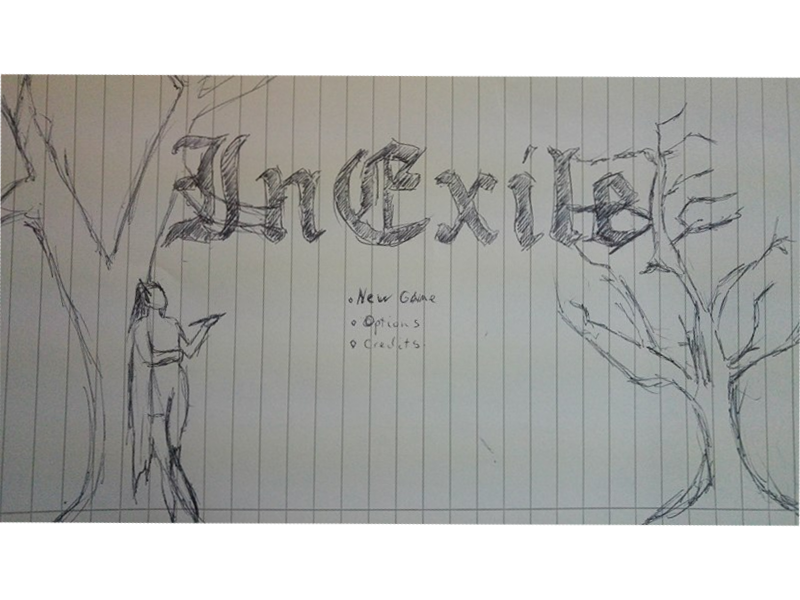 In Exile
New Game
Options
Credits